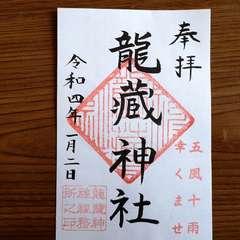 奉拝
龍藏神社
令和四年一月二日
五風十雨
幸くませ
龍藏神
社社務
所之印